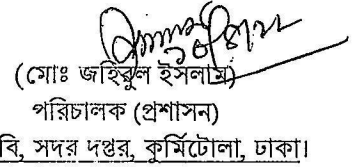 (মোঃ জহিরুল ইসলাম)
পরিচালক (প্রশাসন)
বি, সদর দপ্তর, কুর্মিটোলা, ঢাকা।